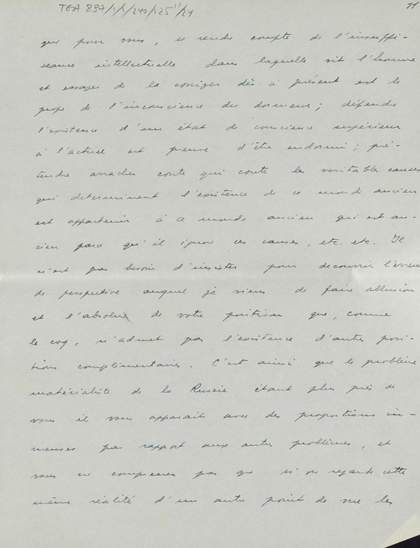 11
que pour vous, se rendre compte de l'insuffi-
sance intellectuelle dans laquelle vit l'homme
et essayer de la corriger dès à présent est le
propre de l'inconscience du dormeur; défendre
l'existence d'un état de conscience supérieur
à l'actuel est preuve d'être endormi; pré-
tendre arracher coûte que coûte les véritables causes
qui déterminent l'existence de ce monde ancien
est appartenir à ce monde ancien qui est an-
cien parce qu'il ignore ces causes, etc. etc. Il
n'est pas besoin d'insister pour découvrir l'erreur
de perspective auquel je viens de faire allusion
et l'absolu de votre position que, comme
le coq, n'admet pas l'existence d'autres posi-
tions complémentaires. C'est ainsi que le problème
matérialiste de la Russie étant plus près de
vous il vous apparaît avec des proportions im-
menses par rapport aux autres problèmes, et
vous ne comprenez pas que si on regarde cette
même réalité d'un autre point de vue les